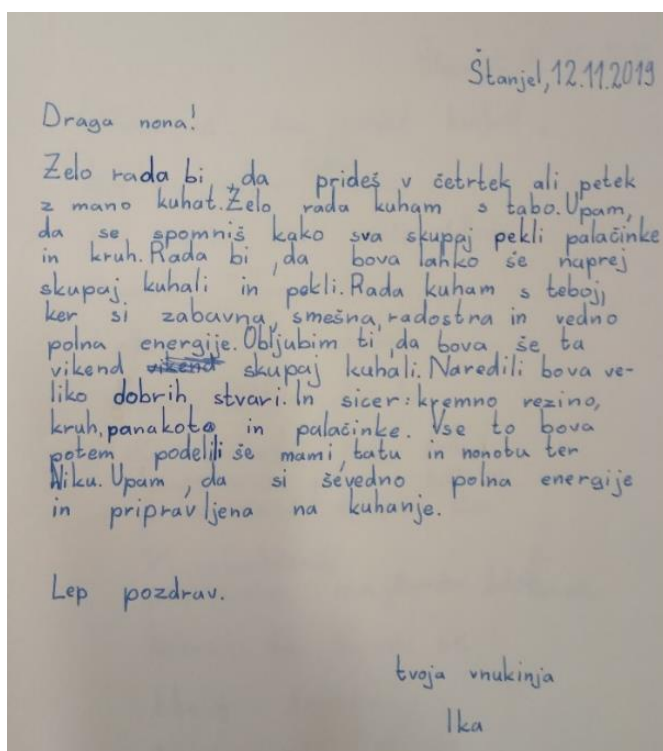 Štanjel, 12.11.2019
Draga nona!
Zelo rada bi, da prideš v četrtek ali petek
z mano kuhat. Zelo rada kuham s tabo. Upam,
da se spomniš kako sva skupaj pekli palačinke
in kruh. Rada bi, da bova lahko še naprej
skupaj kuhali in pekli. Rada kuham s teboj,
ker si zabavna, smešna, radostna in vedno
polna energije. Obljubim ti, da bova še ta
vikend skupaj kuhali. Naredili bova ve-
liko dobrih stvari. In sicer: kremno rezino,
kruh, panakoto in palačinke. Vse to bova
potem podelili še mami, tatu in nonotu ter
Niku. Upam, da si ševedno polna energije
in pripravljena na kuhanje.
Lep pozdrav.
tvoja vnukinja
Ika